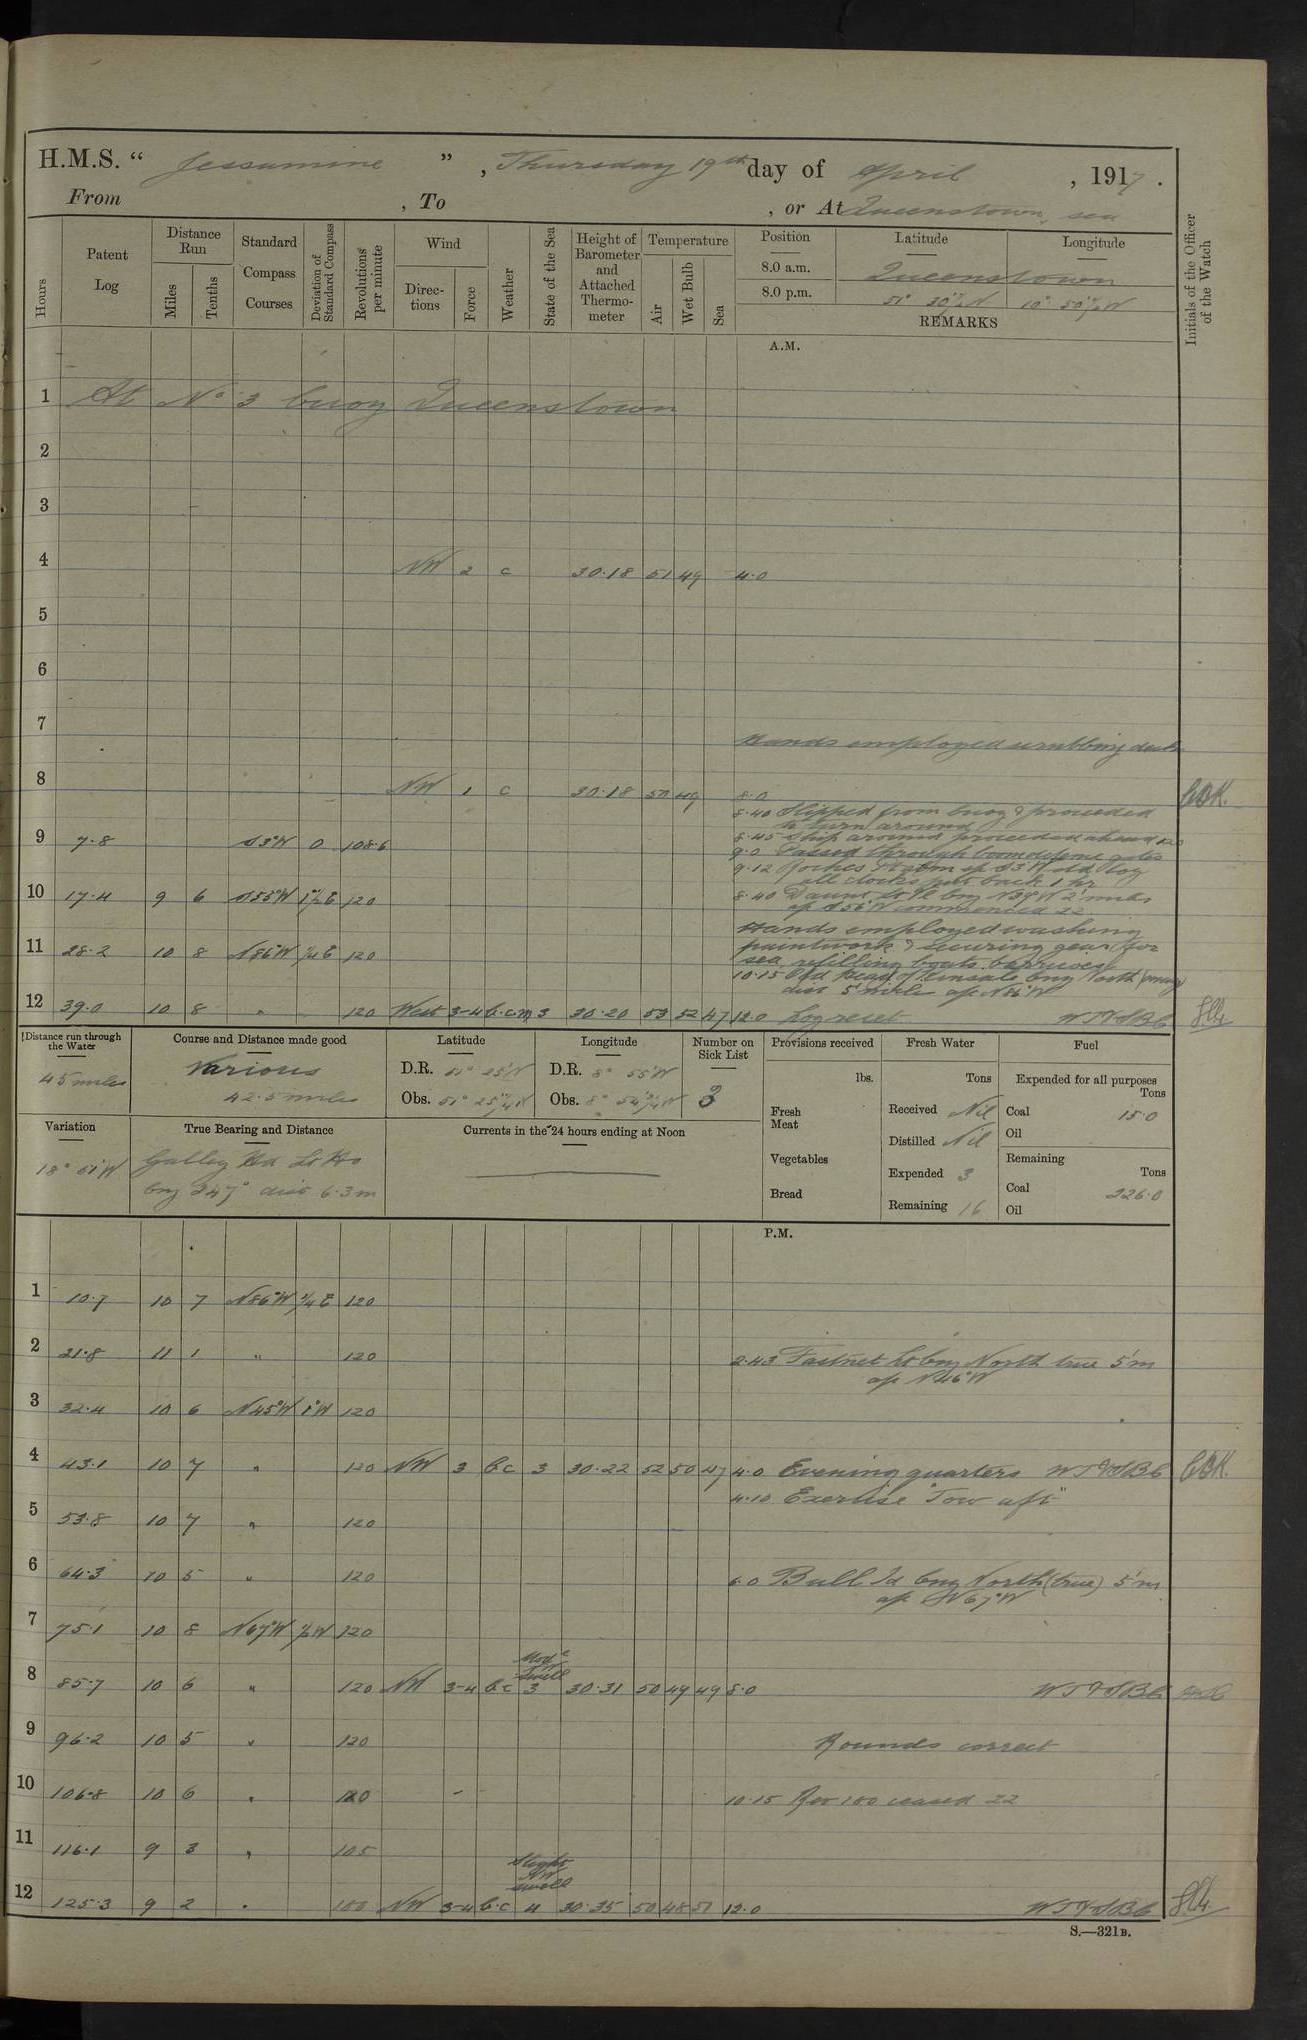 H.M.S. “ Jessamine ” , Thursday 19th day of April , 1917 .
From , To , or At Queenstown, sea
Hours
Patent Log
Distance Run
Miles
Tenths
Standard Compass Courses
Deviation of Standard Compass
Revolutions per minute
Wind
Directions
Force
Weather
State of the Sea
Height of Barometer and Attached Thermometer
Temperature
Air
Wet Bulb
Sea
Position Latitude Longitude
8.0 a.m. Queenstown
8.0 p.m. 51° 30½'N 10° 50½'W
REMARKS
Initials of the Officer of the Watch
A.M.
1 At No 3 buoy Queenstown
2
3
4 NW 2 c 30.18 51 49 4.0
5
6
7
Hands employed scrubbing decks
8 NW 1 c 30.18 50 49 8.0
8.40 Slipped from buoy & proceeded
to turn around
8.45 Ship around proceeded ahead 120
9 7.8 S3°W 0 108.6
9.0 Passed through boom defence gates
9.12 Roches Pt abm a/c S3°W std log
all clocks put back 1 hr
10 17.4 9 6 S55°W 1½E 120
8.40 Daunt Lt Vl bng N39°W 2 miles
a/c S56°W commenced ZZ
Hands employed washing
paintwork & securing gear for
11 28.2 10 8 N86°W ¼E 120
sea, refilling boats barricoes
10.15 Old Head of Kinsale bng North (mag)
dist 5 miles a/c N86°W
12 39.0 10 8 " " 120 West 3-4 b.c.m 3 30.20 53 52 47 12.0 Log reset
Distance run through the Water
45 miles
Course and Distance made good
Various
42.5 miles
Latitude
D.R. 51° 25'N
Obs. 51° 25¼'N
Longitude
D.R. 8° 55'W
Obs. 8° 54¾'W
Number on Sick List
3
Provisions received
lbs.
Fresh Meat
Vegetables
Bread
Fresh Water
Tons
Received Nil
Distilled Nil
Expended 3
Remaining 16
Fuel
Expended for all purposes
Tons
Coal 15.0
Oil
Remaining
Tons
Coal 226.0
Oil
Variation
18° 51'W
True Bearing and Distance
Galley Hd Lt Ho
bng 247° dist 6.3 m
Currents in the 24 hours ending at Noon
P.M.
1 10.7 10 7 N86°W ¼E 120
2 21.8 11 1 " 120
2.43 Fastnet Lt bng North true 5'm
a/c N46°W
3 32.4 10 6 N45°W 1°W 120
4 43.1 10 7 " 120 NW 3 b.c 3 30.22 52 50 47 4.0 Evening quarters
4.10 Exercise "Tow aft"
5 53.8 10 7 " 120
6 64.3 10 5 " 120
6.0 Bull Id bng North (true) 5'm
a/c N67°W
7 75.1 10 8 N67°W ½W 120
Modte Swell
8 85.7 10 6 " 120 NW 3-4 b.c 3 30.31 50 49 49 8.0
9 96.2 10 5 " 120 Rounds correct
10 106.8 10 6 " 120 10.15 Rev 100 ceased ZZ
11 116.1 9 3 " 105
Slight NW swell
12 125.3 9 2 " 100 NW 3-4 b.c 4 30.35 50 48 51 12.0
S.—321B.